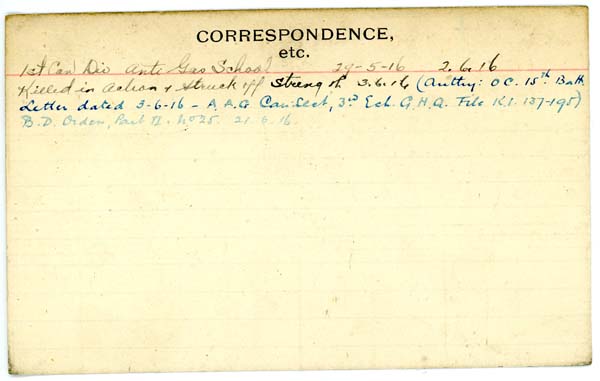 CORRESPONDENCE,
etc.
1st Can Div Anti Gas School 29-5-16 2.6.16
Killed in Action & Struck off Strength 3.6.16 (Authy: OC. 15th Batt
Letter dated 3-6-16 - A.A.G. Can. Sect, 3rd Ech. G.H.Q. File K.1. 137-195)
B.D. Orders, Part II. No 25. 21.6.16.